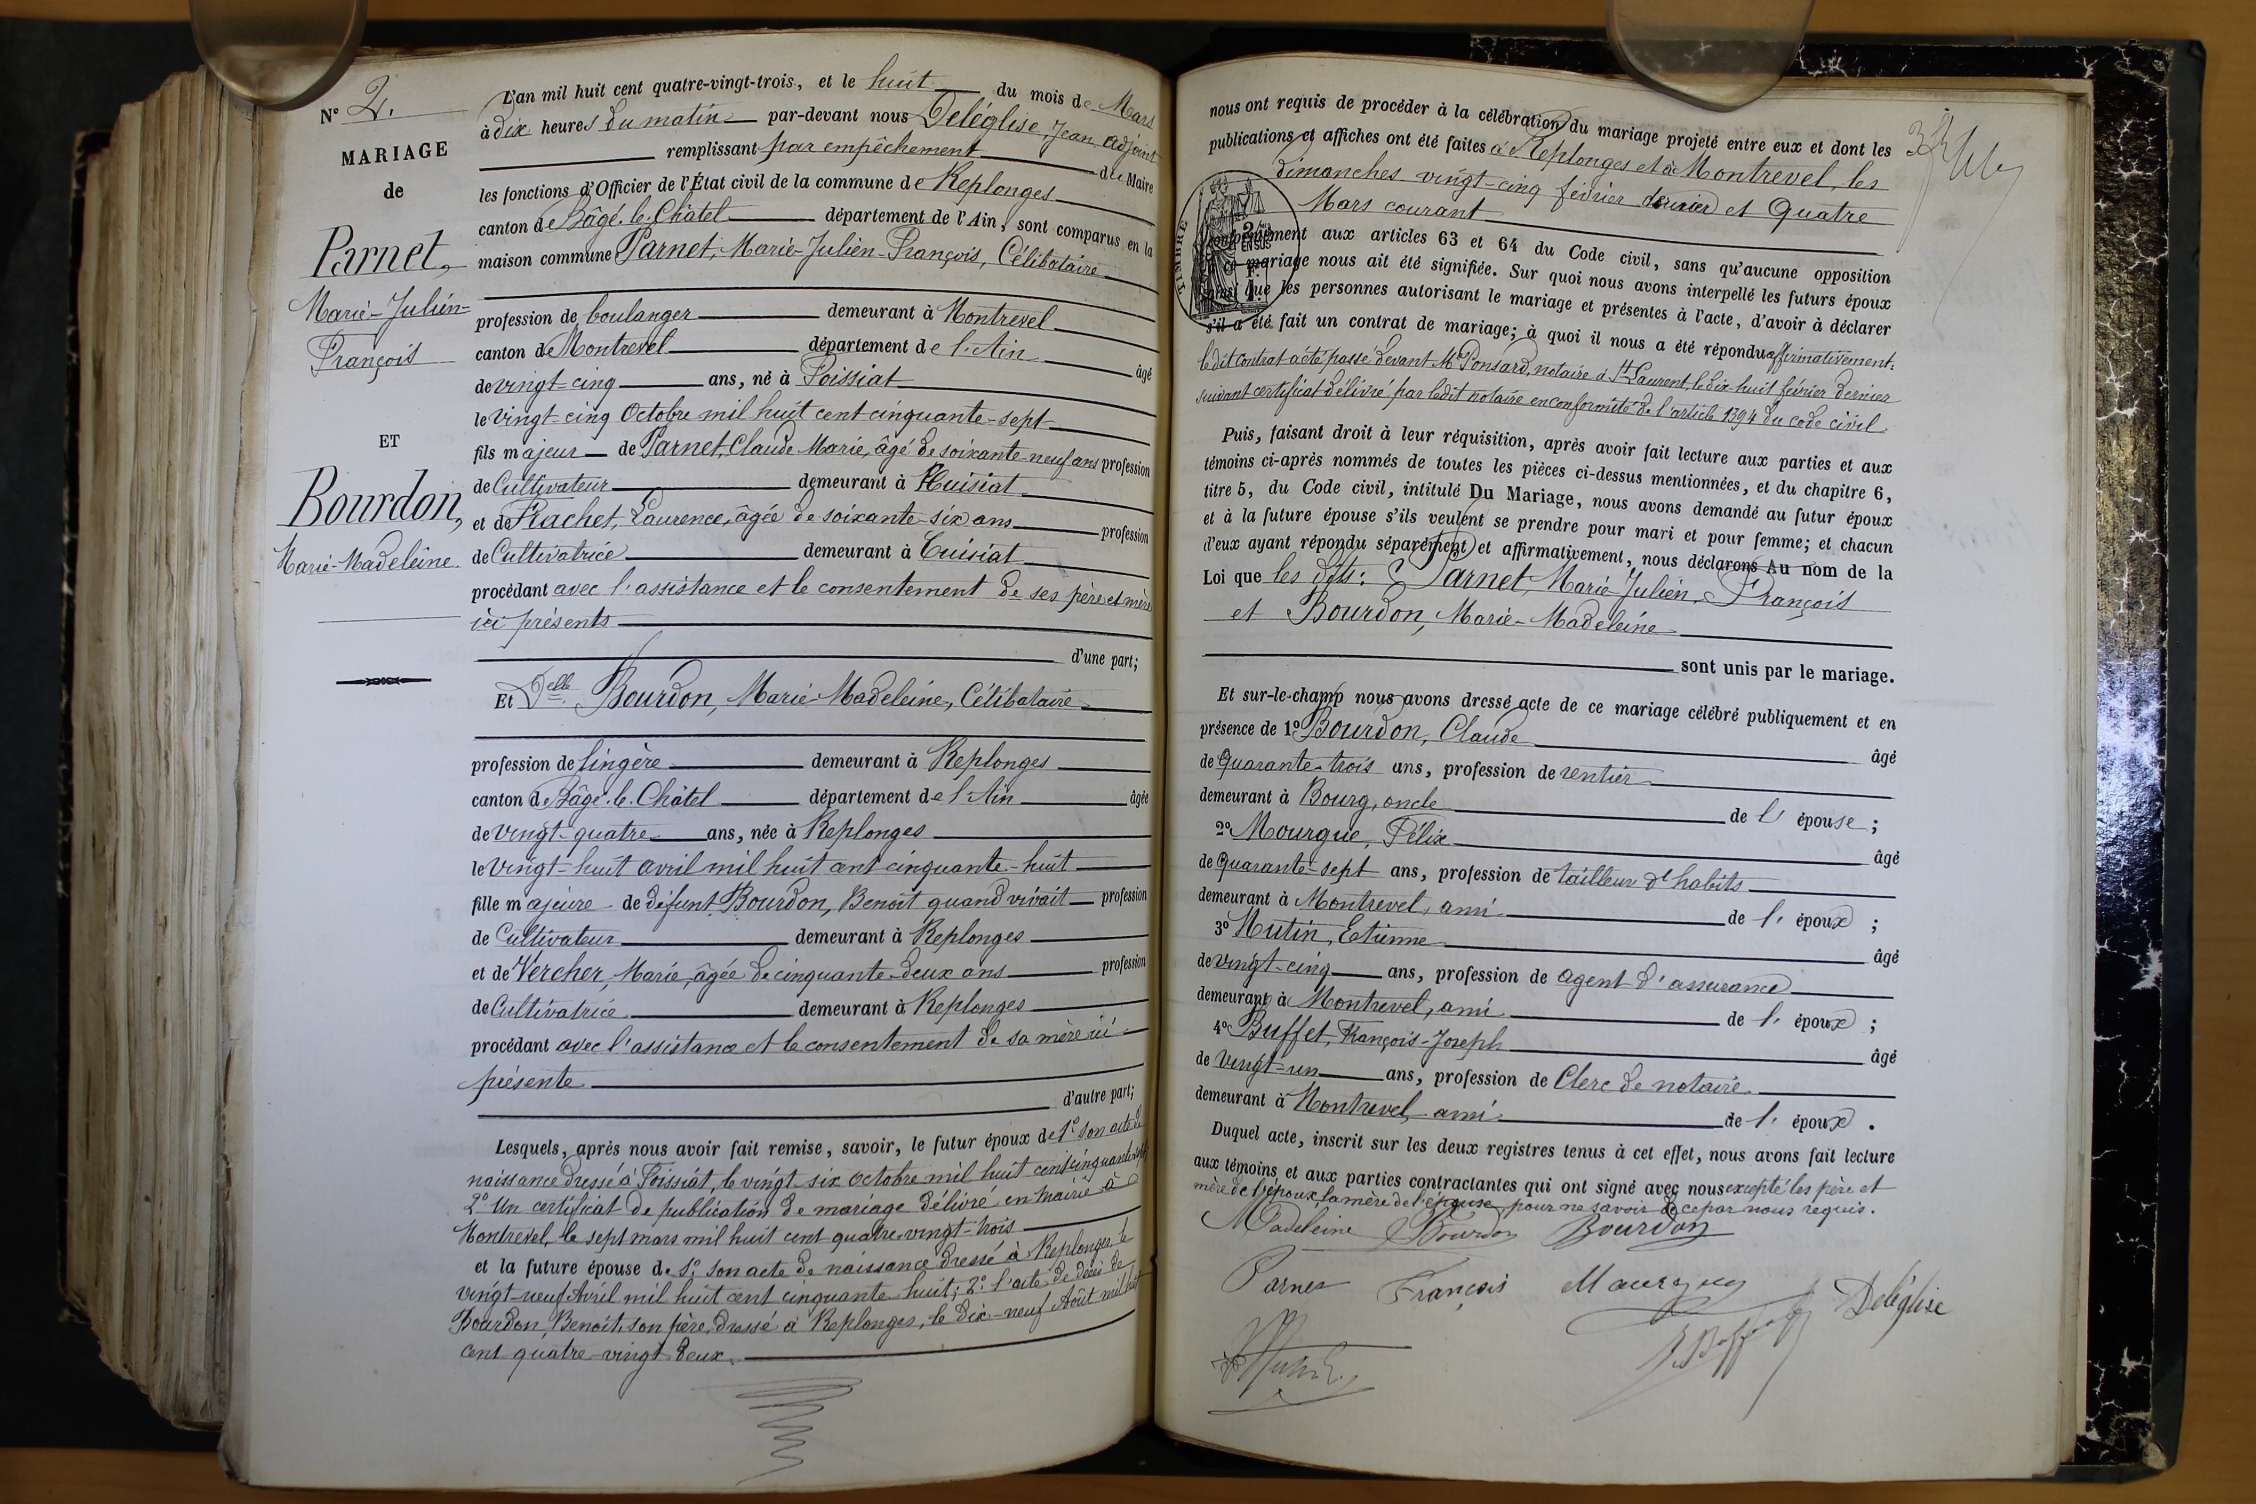 N° 2.
MARIAGE
de
Parnet,
Marie-Julien-
François
ET
Bourdon,
Marie-Madeleine.
L'an mil huit cent quatre-vingt-trois, et le huit du mois de Mars
à dix heures du matin par-devant nous Deléglise, Jean adjoint
remplissant par empêchement du Maire
les fonctions d'Officier de l'État civil de la commune de Replonges
canton de Bâgé-le-Châtel département de l'Ain, sont comparus en la
maison commune Parnet, Marie-Julien-François, Célibataire
profession de boulanger demeurant à Montrevel
canton de Montrevel département de l'Ain âgé
de vingt-cinq ans, né à Foissiat
le vingt-cinq Octobre mil huit cent cinquante-sept
fils majeur de Parnet, Claude Marie, âgé de soixante-neuf ans profession
de Cultivateur demeurant à Cuisiat
et de Flachet, Laurence, âgée de soixante-six ans profession
de Cultivatrice demeurant à Cuisiat
procédant avec l'assistance et le consentement de ses père et mère
ici présents
d'une part;
Et Delle Bourdon, Marie-Madeleine, Célibataire
profession de lingère demeurant à Replonges
canton de Bâgé-le-Châtel département de l'Ain âgée
de vingt-quatre ans, née à Replonges
le vingt-huit avril mil huit cent cinquante-huit
fille majeure de défunt Bourdon, Benoît quand vivait profession
de Cultivateur demeurant à Replonges
et de Vercher, Marie, âgée de cinquante-deux ans profession
de Cultivatrice demeurant à Replonges
procédant avec l'assistance et le consentement de sa mère ici
présente
d'autre part;
Lesquels, après nous avoir fait remise, savoir, le futur époux de 1° son acte de
naissance dressé à Foissiat, le vingt-six octobre mil huit cent cinquante-sept;
2° Un certificat de publication de mariage délivré en mairie à
Montrevel, le sept mars mil huit cent quatre-vingt-trois
et la future épouse de 1° son acte de naissance dressé à Replonges le
vingt-neuf Avril mil huit cent cinquante-huit; 2° l'acte de décès de
Bourdon, Benoît, son père, dressé à Replonges, le dix-neuf Août mil huit
cent quatre-vingt-deux.
nous ont requis de procéder à la célébration du mariage projeté entre eux et dont les
publications et affiches ont été faites à Replonges et à Montrevel, les
dimanches vingt-cinq février dernier et Quatre
Mars courant
TIMBRE
conformément aux articles 63 et 64 du Code civil, sans qu'aucune opposition
à ce mariage nous ait été signifiée. Sur quoi nous avons interpellé les futurs époux
ainsi que les personnes autorisant le mariage et présentes à l'acte, d'avoir à déclarer
s'il a été fait un contrat de mariage; à quoi il nous a été répondu affirmativement:
le dit contrat a été passé devant Me Ponsard, notaire à St Laurent, le dix huit février dernier
suivant certificat délivré par ledit notaire en conformité de l'article 1394 du code civil.
Puis, faisant droit à leur réquisition, après avoir fait lecture aux parties et aux
témoins ci-après nommés de toutes les pièces ci-dessus mentionnées, et du chapitre 6,
titre 5, du Code civil, intitulé Du Mariage, nous avons demandé au futur époux
et à la future épouse s'ils veulent se prendre pour mari et pour femme; et chacun
d'eux ayant répondu séparément et affirmativement, nous déclarons Au nom de la
Loi que les dits: Parnet, Marie-Julien-François
et Bourdon, Marie-Madeleine
sont unis par le mariage.
Et sur-le-champ nous avons dressé acte de ce mariage célébré publiquement et en
présence de 1° Bourdon, Claude âgé
de Quarante-trois ans, profession de rentier
demeurant à Bourg, oncle de l'épouse;
2° Mourgue, Félix âgé
de Quarante-sept ans, profession de tailleur d'habits
demeurant à Montrevel, ami de l'époux;
3° Mutin, Etienne âgé
de vingt-cinq ans, profession de agent d'assurance
demeurant à Montrevel, ami de l'époux;
4° Buffet, François-Joseph âgé
de vingt-un ans, profession de Clerc de notaire
demeurant à Montrevel, ami de l'époux.
Duquel acte, inscrit sur les deux registres tenus à cet effet, nous avons fait lecture
aux témoins et aux parties contractantes qui ont signé avec nous excepté les père et
mère de l'époux, la mère de l'épouse pour ne savoir de ce par nous requis.
Madeleine Bourdon Bourdon
Parnet François Mourgue Deléglise